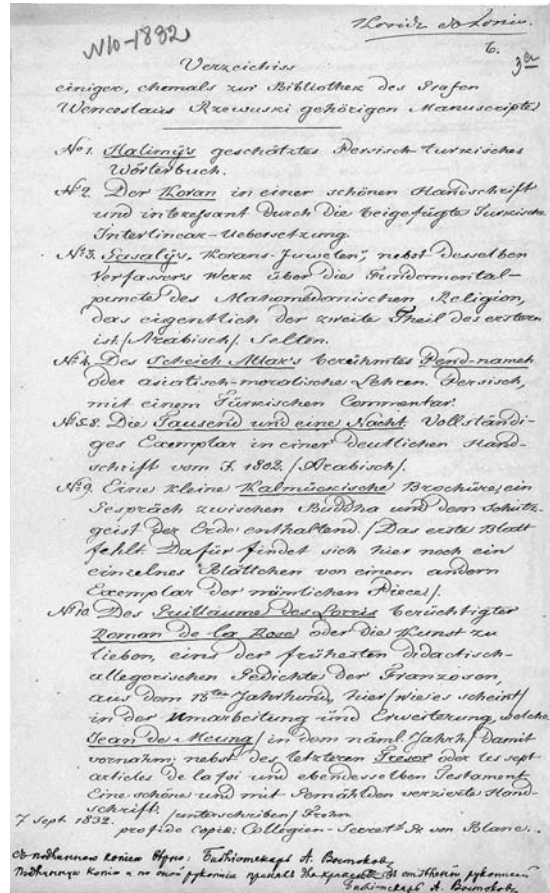 N10-1832
3
Verzeichiss
einiger, ehemals zur Bibliothek des Grafen
Wenceslaus Rzewuski gehörigen Manuscripte
Nº1. Halimÿ's geschätztes Persisch-turkisches
Wörterbuch.
Nº2. Der Koran in einer schönen Handschrift
und interessant durch die beigefügte Turkische
Interlinear-Uebersetzung.
Nº3. Gasalÿs, Korans-Juwelen, nebst desselben
Verfassers Werk über die Fundamental-
puncte des Mahomedanischen Religion,
das eigentlich der zweite Theil des erstern
ist /Arabisch/. Selten.
Nº4. Des Scheich Attar's berühmtes Pend-nameh
oder asiatisch-moralische Lehren. Persisch,
mit einem Türkischen Commentar.
Nº5-8. Die Tausend und eine Nacht. Vollständi-
ges Exemplar in einer deutlichen Hand-
schrift vom J. 1802. /Arabisch/.
Nº9. Eine kleine Kalmückische Brochüre, ein
Gespräch zwischen Buddha und dem Schutz-
geist der Erde enthaltend. /Das erste Blatt
fehlt. Dafür findet sich hier noch ein
einzelnes Blättchen von einem andern
Exemplar der nämlichen Piece/.
Nº10. Des Guillaume des Lorris berüchtigter
Roman de la Rose oder die Kunst zu
lieben, eins der frühesten didactisch-
allegorischen Gedichte der Franzosen,
aus dem 13ten Jahrhund, hier /wie es scheint/
in der Umarbeitung und Erweiterung, welche
Jean de Meung /in dem näml. Jahrh./ damit
vornahm: nebst des letzteren Tresor oder les sept
articles de la foi und ebendesselben Testament.
Eine schöne und mit Gemählden verzierte Hand-
schrift. /unterschrieben/ Frehn
7 Sept. 1832. pro fide copiae: Collegien-Secret. von Blanc...
съ подлинною копiею вѣрно: Библiотекарь А. Востоковъ.
Подлинную копiю и по оной рукописи принялъ въ отдѣленiе рукописей
Библiотекарь А. Востоковъ.